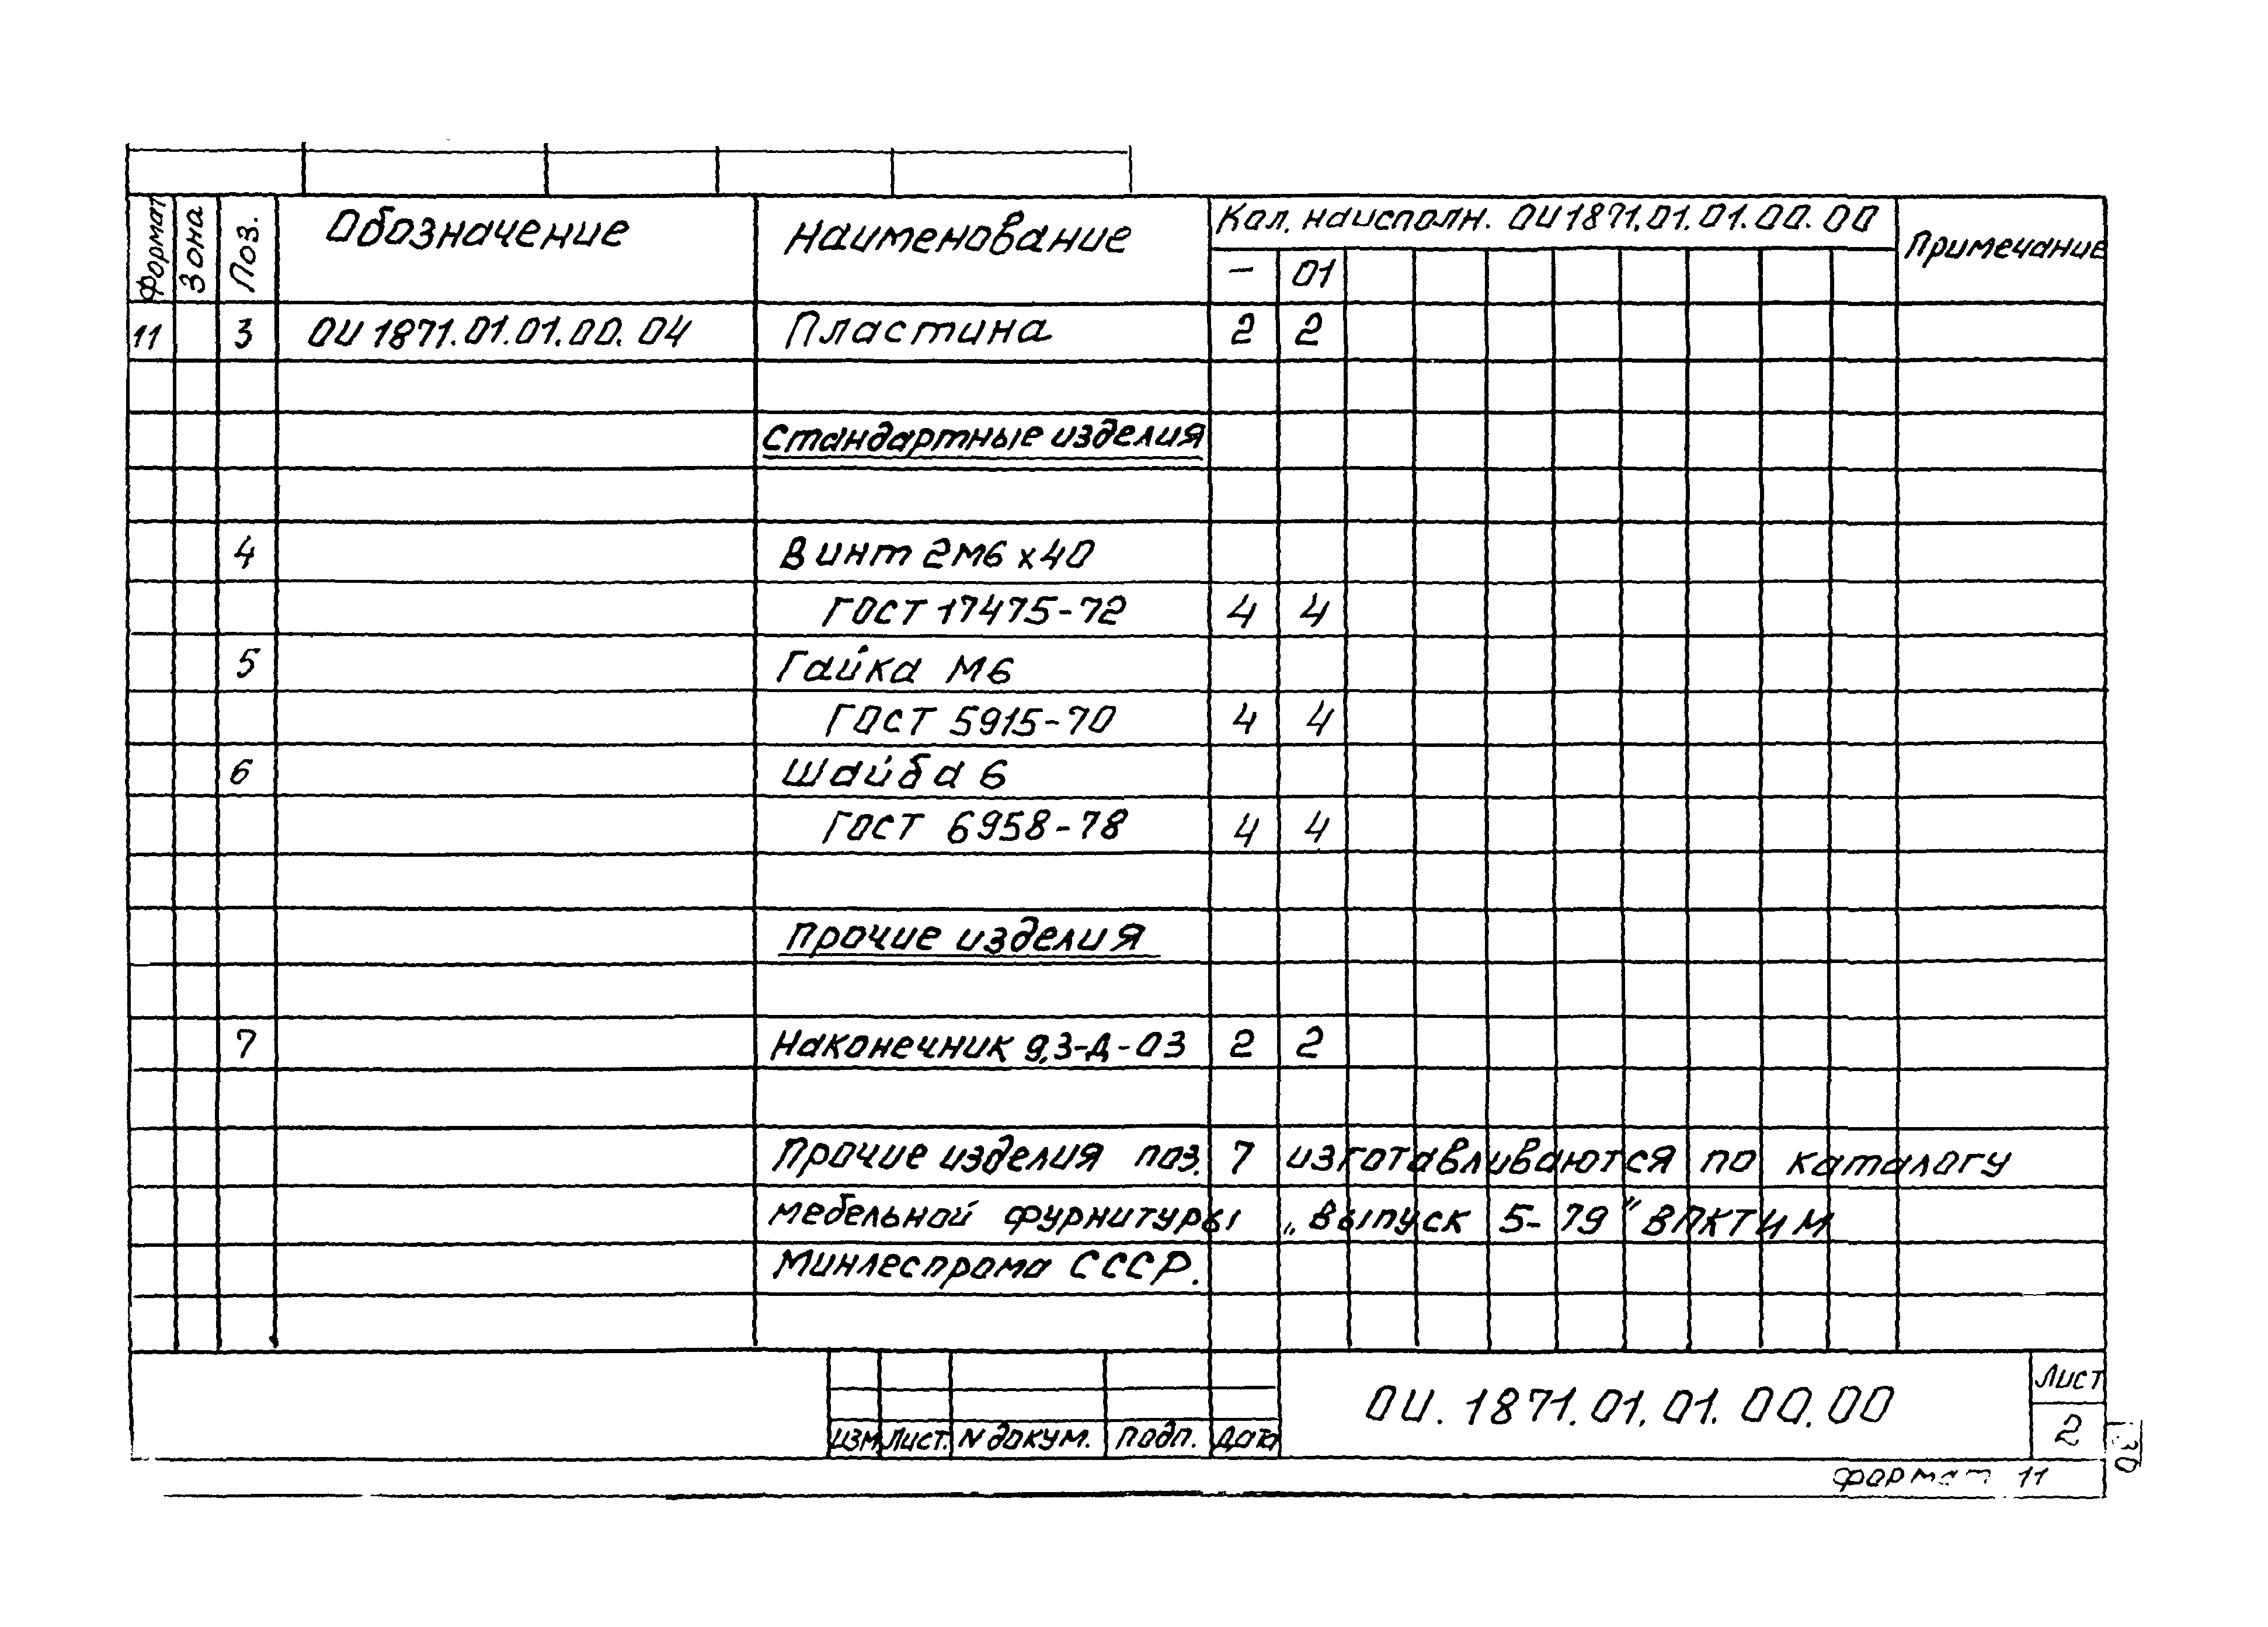 Формат Зона Поз. Обозначение Наименование Кол. на исполн. ОИ 1871.01.01.00.00 Примечание
– 01
11 3 ОИ 1871.01.01.00.04 Пластина 2 2
Стандартные изделия
4 Винт 2М6х40
ГОСТ 17475-72 4 4
5 Гайка М6
ГОСТ 5915-70 4 4
6 Шайба 6
ГОСТ 6958-78 4 4
Прочие изделия
7 Наконечник 9,3-Д-03 2 2
Прочие изделия поз. 7 изготавливаются по каталогу
мебельной фурнитуры „Выпуск 5-79" ВПКТИМ
Минлеспрома СССР.
ОИ. 1871.01.01.00.00 Лист
Изм Лист. N докум. Подп. Дата 2
Формат 11